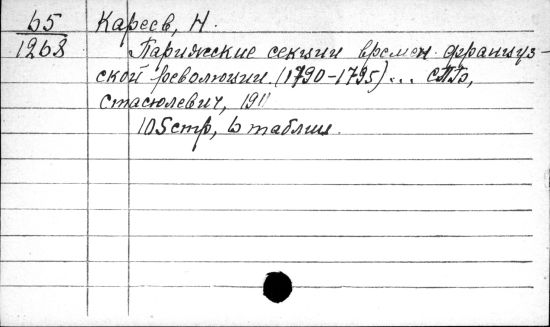 65 Кареев, Н.
1268 Парижские секции времен француз-
ской революции (1790-1795)... СПБ,
Стасюлевич, 1911
105 стр, 6 таблиц.